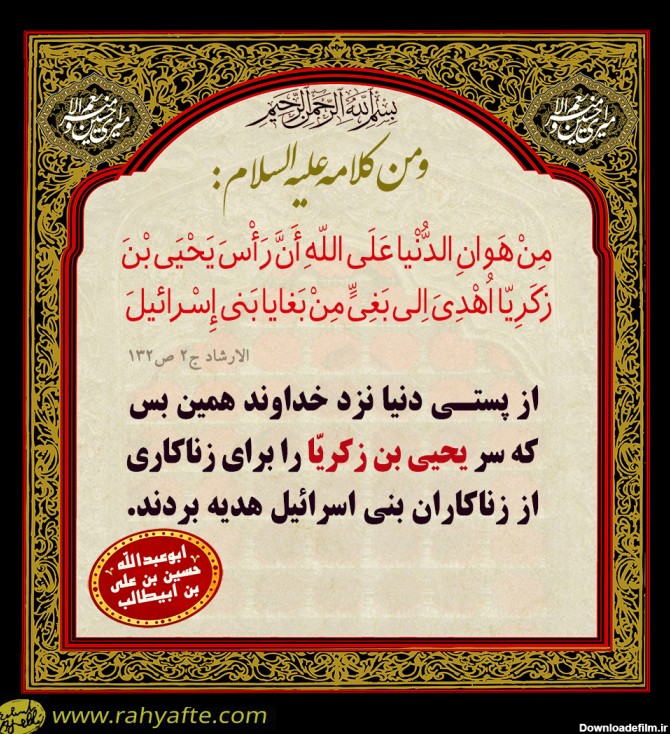 بسم الله الرحمن الرحیم
ومن کلامه علیه السلام :
مِنْ هَوانِ الدُّنْیا عَلَی اللّهِ أَنَّ رَأْسَ یَحْیَی بْنَ
زَکَرِیّا اُهْدِیَ اِلی بَغِیٍّ مِنْ بَغایا بَنی إِسْرائیلَ
الارشاد ج۲ ص۱۳۲
از پستــی دنیا نزد خداوند همین بس
که سر یحیی بن زکریّا را برای زناکاری
از زناکاران بنی اسرائیل هدیه بردند.
ابوعبدالله
حسین بن علی
بن ابیطالب
www.rahyafte.com
Downloadefilm.ir